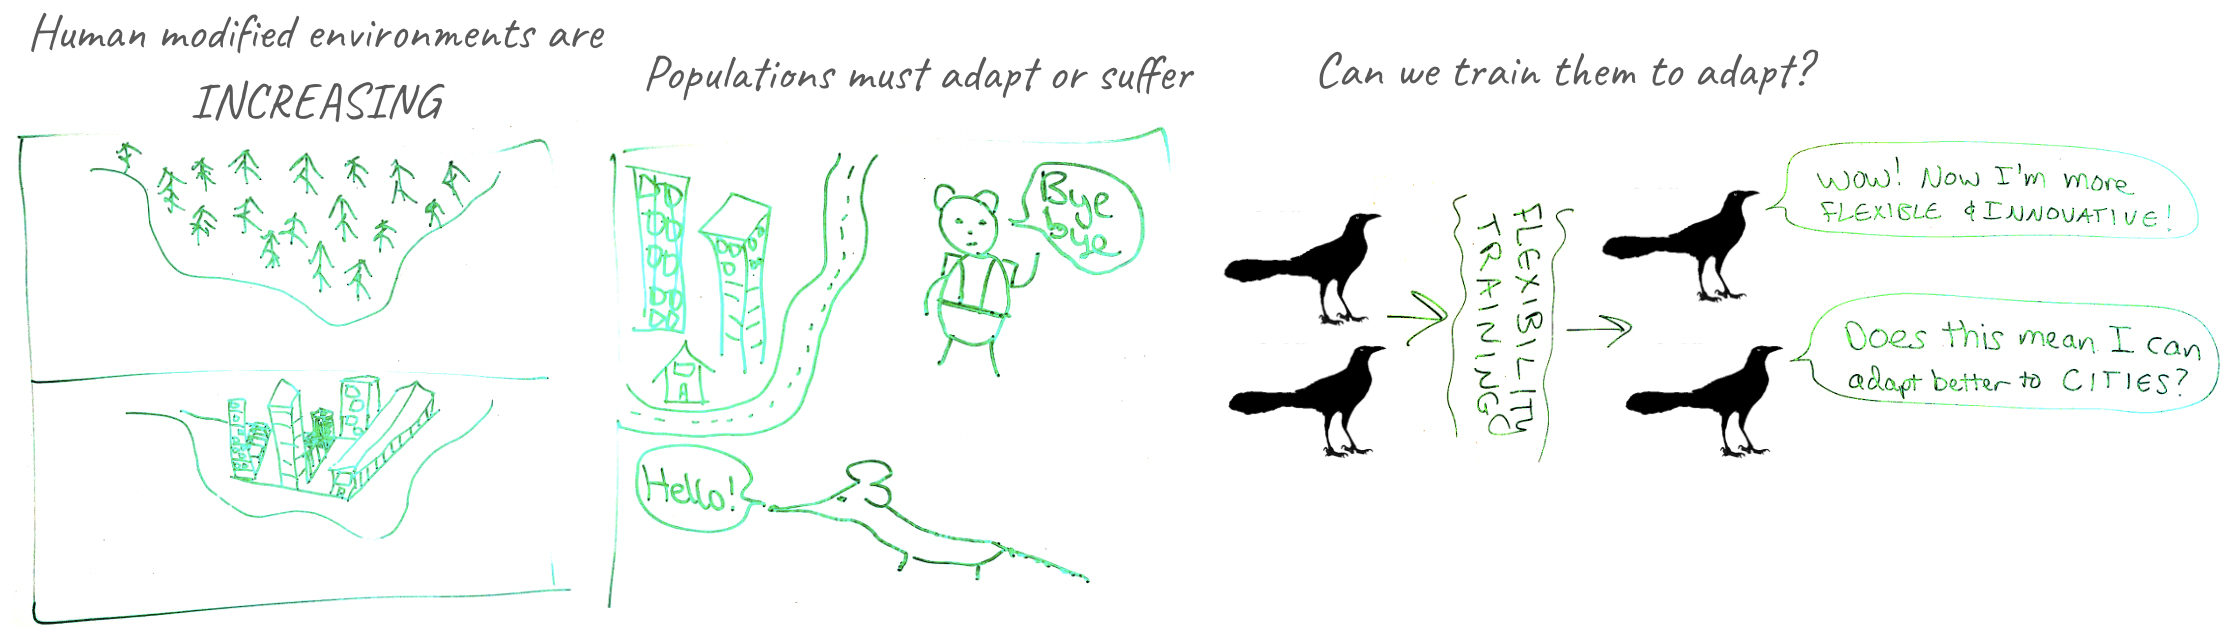 Human modified environments are
INCREASING
Populations must adapt or suffer
Bye
bye
Hello!
Can we train them to adapt?
FLEXIBILITY
TRAINING
WOW! Now I'm more
FLEXIBLE & INNOVATIVE!
Does this mean I can
adapt better to CITIES?